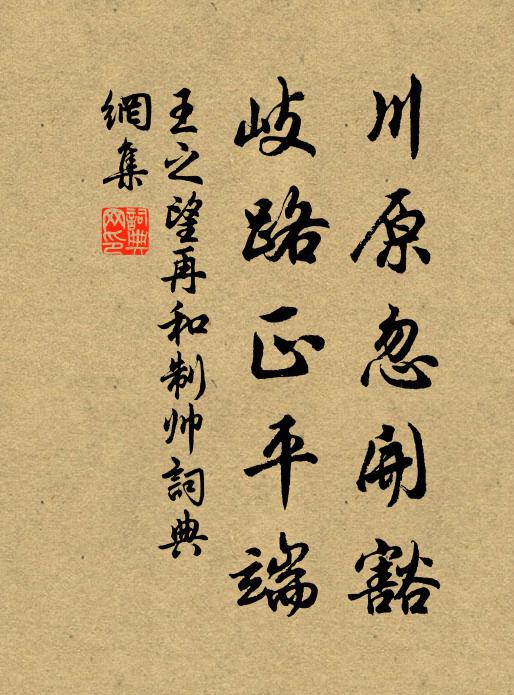 川原忽開豁
岐路正平端
王之望再和制帅詞典
網集
詞典網印